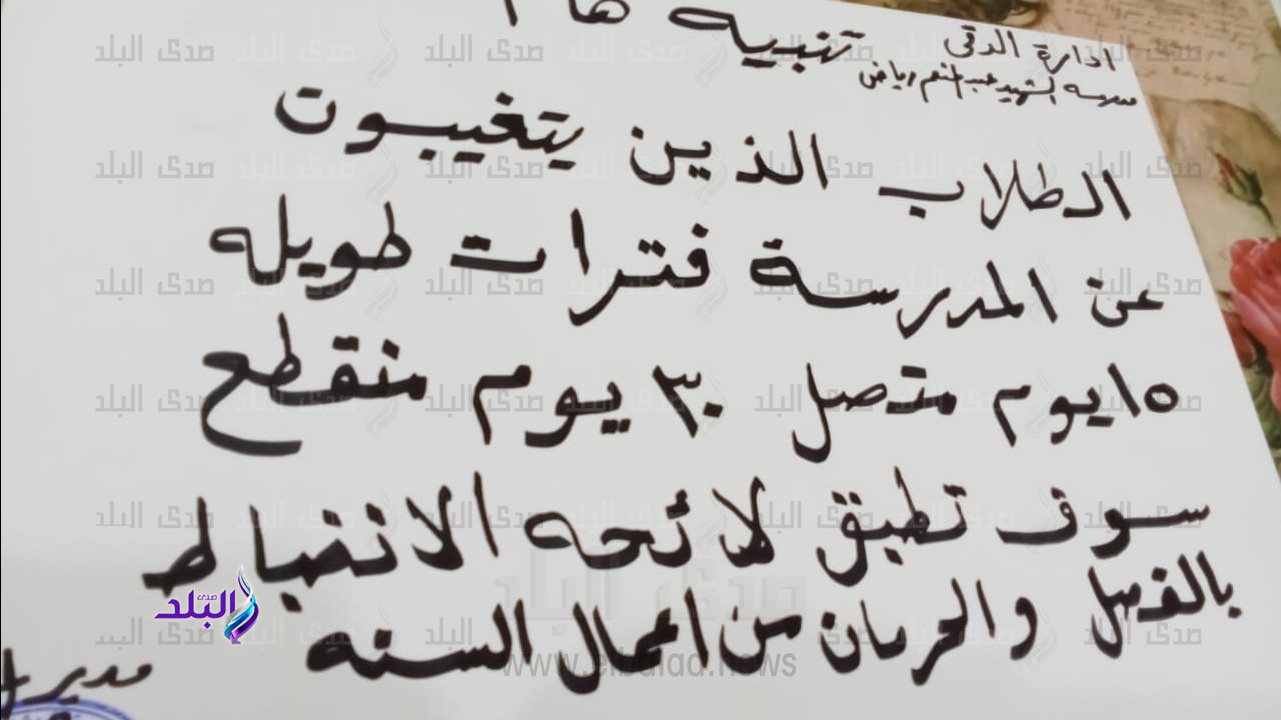 ادارة الدقى
مدرسه الشهيد عبد المنعم رياض
تنبيه هام
الطلاب الذين يتغيبوت
عن المدرسة فترات طويله
١٥ يوم متصل ٣٠ يوم منقطع
سوف تطبق لائحه الانضباط
بالفصل والحرمان من اعمال السنه
مدير
صدى البلد
www.elbalad.news